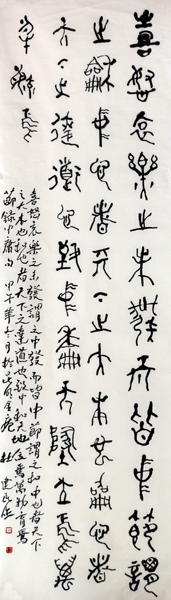 喜怒哀樂之未發而皆中節謂
之龢中也者天下之大本也龢也者
天下之達道也致中龢天地位焉萬
物育焉
喜怒哀樂之未發謂之中發而皆中節謂之和中也者天下
之大本也和也者天下之達道也致中和天地位焉萬物育焉
節錄中庸句 甲午年